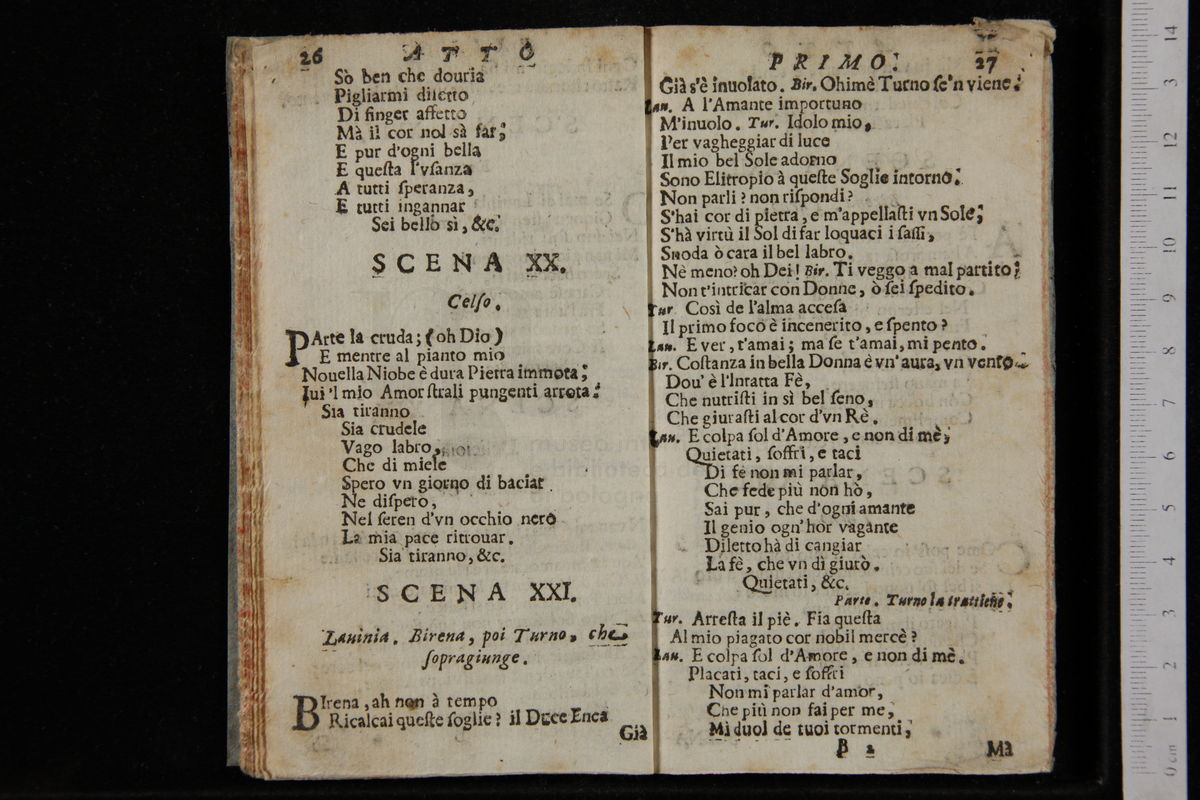 26 ATTO
Sò ben che douria
Pigliarmi diletto
Di finger affetto
Mà il cor nol sà far;
E pur d'ogni bella
E questa l'vsanza
A tutti speranza,
E tutti ingannar
Sei bello sì, &c.
SCENA XX.
Celso.
PArte la cruda; (oh Dio)
E mentre al pianto mio
Nouella Niobe è dura Pietra immota;
Iui 'l mio Amor strali pungenti arrota.
Sia tiranno
Sia crudele
Vago labro,
Che di miele
Spero vn giorno di baciar
Ne dispero,
Nel seren d'vn occhio nero
La mia pace ritrouar.
Sia tiranno, &c.
SCENA XXI.
Lauinia. Birena, poi Turno, che
sopragiunge.
BIrena, ah non à tempo
Ricalcai queste soglie? il Duce Enea
Già
PRIMO. 27
Già s'è inuolato. Bir. Ohimè Turno se'n viene.
Lau. A l'Amante importuno
M'inuolo. Tur. Idolo mio,
Per vagheggiar di luce
Il mio bel Sole adorno
Sono Elitropio à queste Soglie intorno.
Non parli? non rispondi?
S'hai cor di pietra, e m'appellasti vn Sole;
S'hà virtù il Sol di far loquaci i sassi,
Snoda ò cara il bel labro.
Nè meno? oh Dei! Bir. Ti veggo a mal partito;
Non t'intricar con Donne, ò sei spedito.
Tur Così de l'alma accesa
Il primo foco è incenerito, e spento?
Lau. E ver, t'amai; ma se t'amai, mi pento.
Bir. Costanza in bella Donna è vn'aura, vn vento.
Dou' è l'Inratta Fè,
Che nutristi in sì bel seno,
Che giurasti al cor d'vn Rè.
Lau. E colpa sol d'Amore, e non di mè;
Quietati, soffri, e taci
Di fè non mi parlar,
Che fede più non hò,
Sai pur, che d'ogni amante
Il genio ogn'hor vagante
Diletto hà di cangiar
La fè, che vn dì giurò.
Quietati, &c.
Parte. Turno la trattiene.
Tur. Arresta il piè. Fia questa
Al mio piagato cor nobil mercè?
Lau. E colpa sol d'Amore, e non di mè.
Placati, taci, e soffri
Non mi parlar d'amor,
Che più non fai per me,
Mi duol de tuoi tormenti,
B 2 Mà